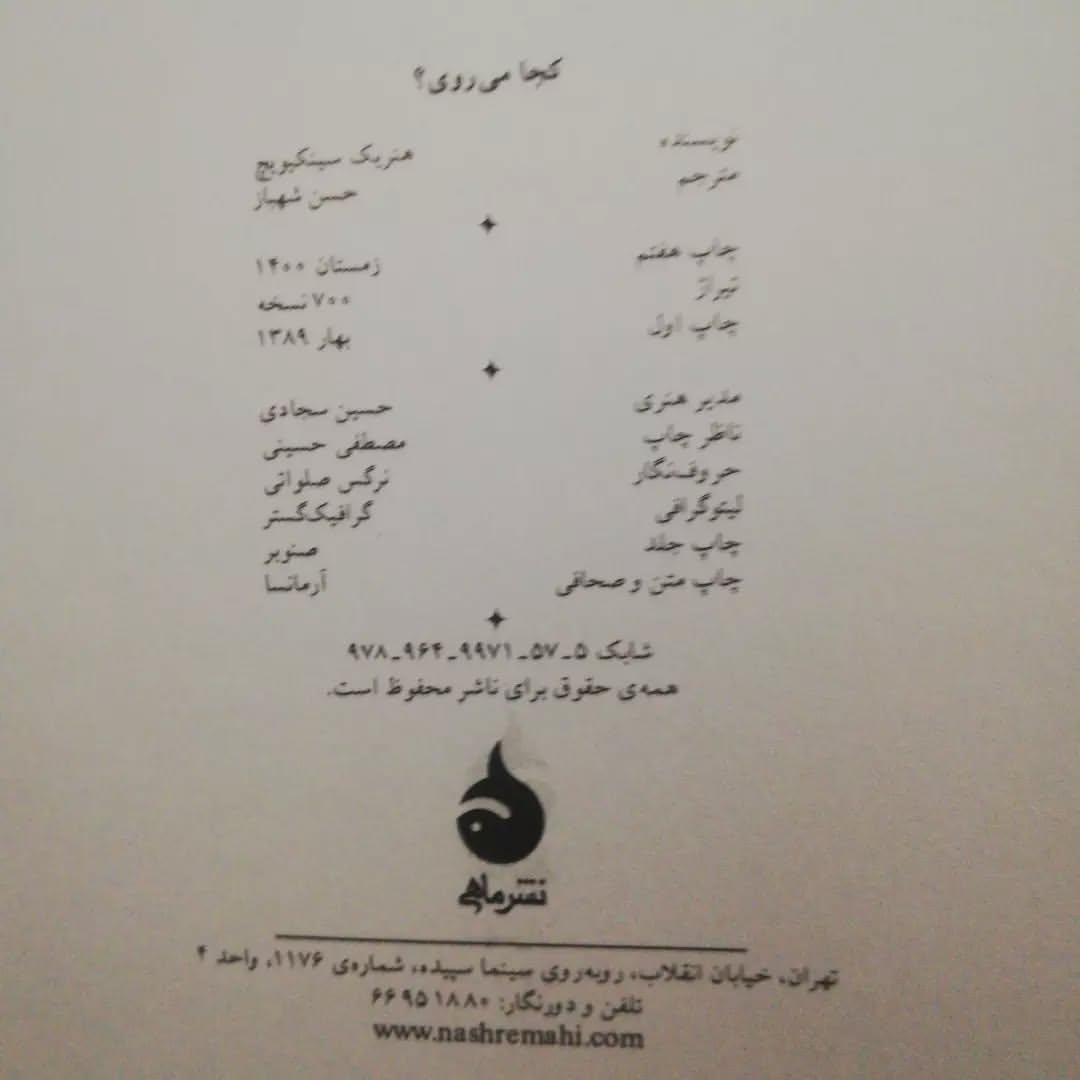 کجا می‌روی؟
نویسنده هنریک سینکیویچ
مترجم حسن شهباز
چاپ هفتم زمستان ۱۴۰۰
تیراژ ۷۰۰ نسخه
چاپ اول بهار ۱۳۸۹
مدیر هنری حسین سجادی
ناظر چاپ مصطفی حسینی
حروف‌نگار نرگس صلواتی
لیتوگرافی گرافیک‌گستر
چاپ جلد صنوبر
چاپ متن و صحافی آرمانسا
شابک ۵-۵۷-۹۹۷۱-۹۶۴-۹۷۸
همه‌ی حقوق برای ناشر محفوظ است.
نشرماهی
تهران، خیابان انقلاب، روبه‌روی سینما سپیده، شماره‌ی ۱۱۷۶، واحد ۴
تلفن و دورنگار: ۶۶۹۵۱۸۸۰
www.nashremahi.com